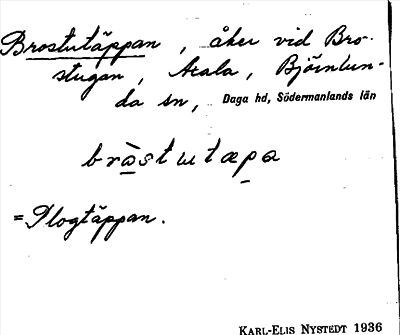 Brostutäppan, åker vid Bro-
stugan, Axala, Björnlun-
da sn, Daga hd, Södermanlands län
bràstutæpa
=Plogtäppan.
KARL-ELIS NYSTEDT 1936